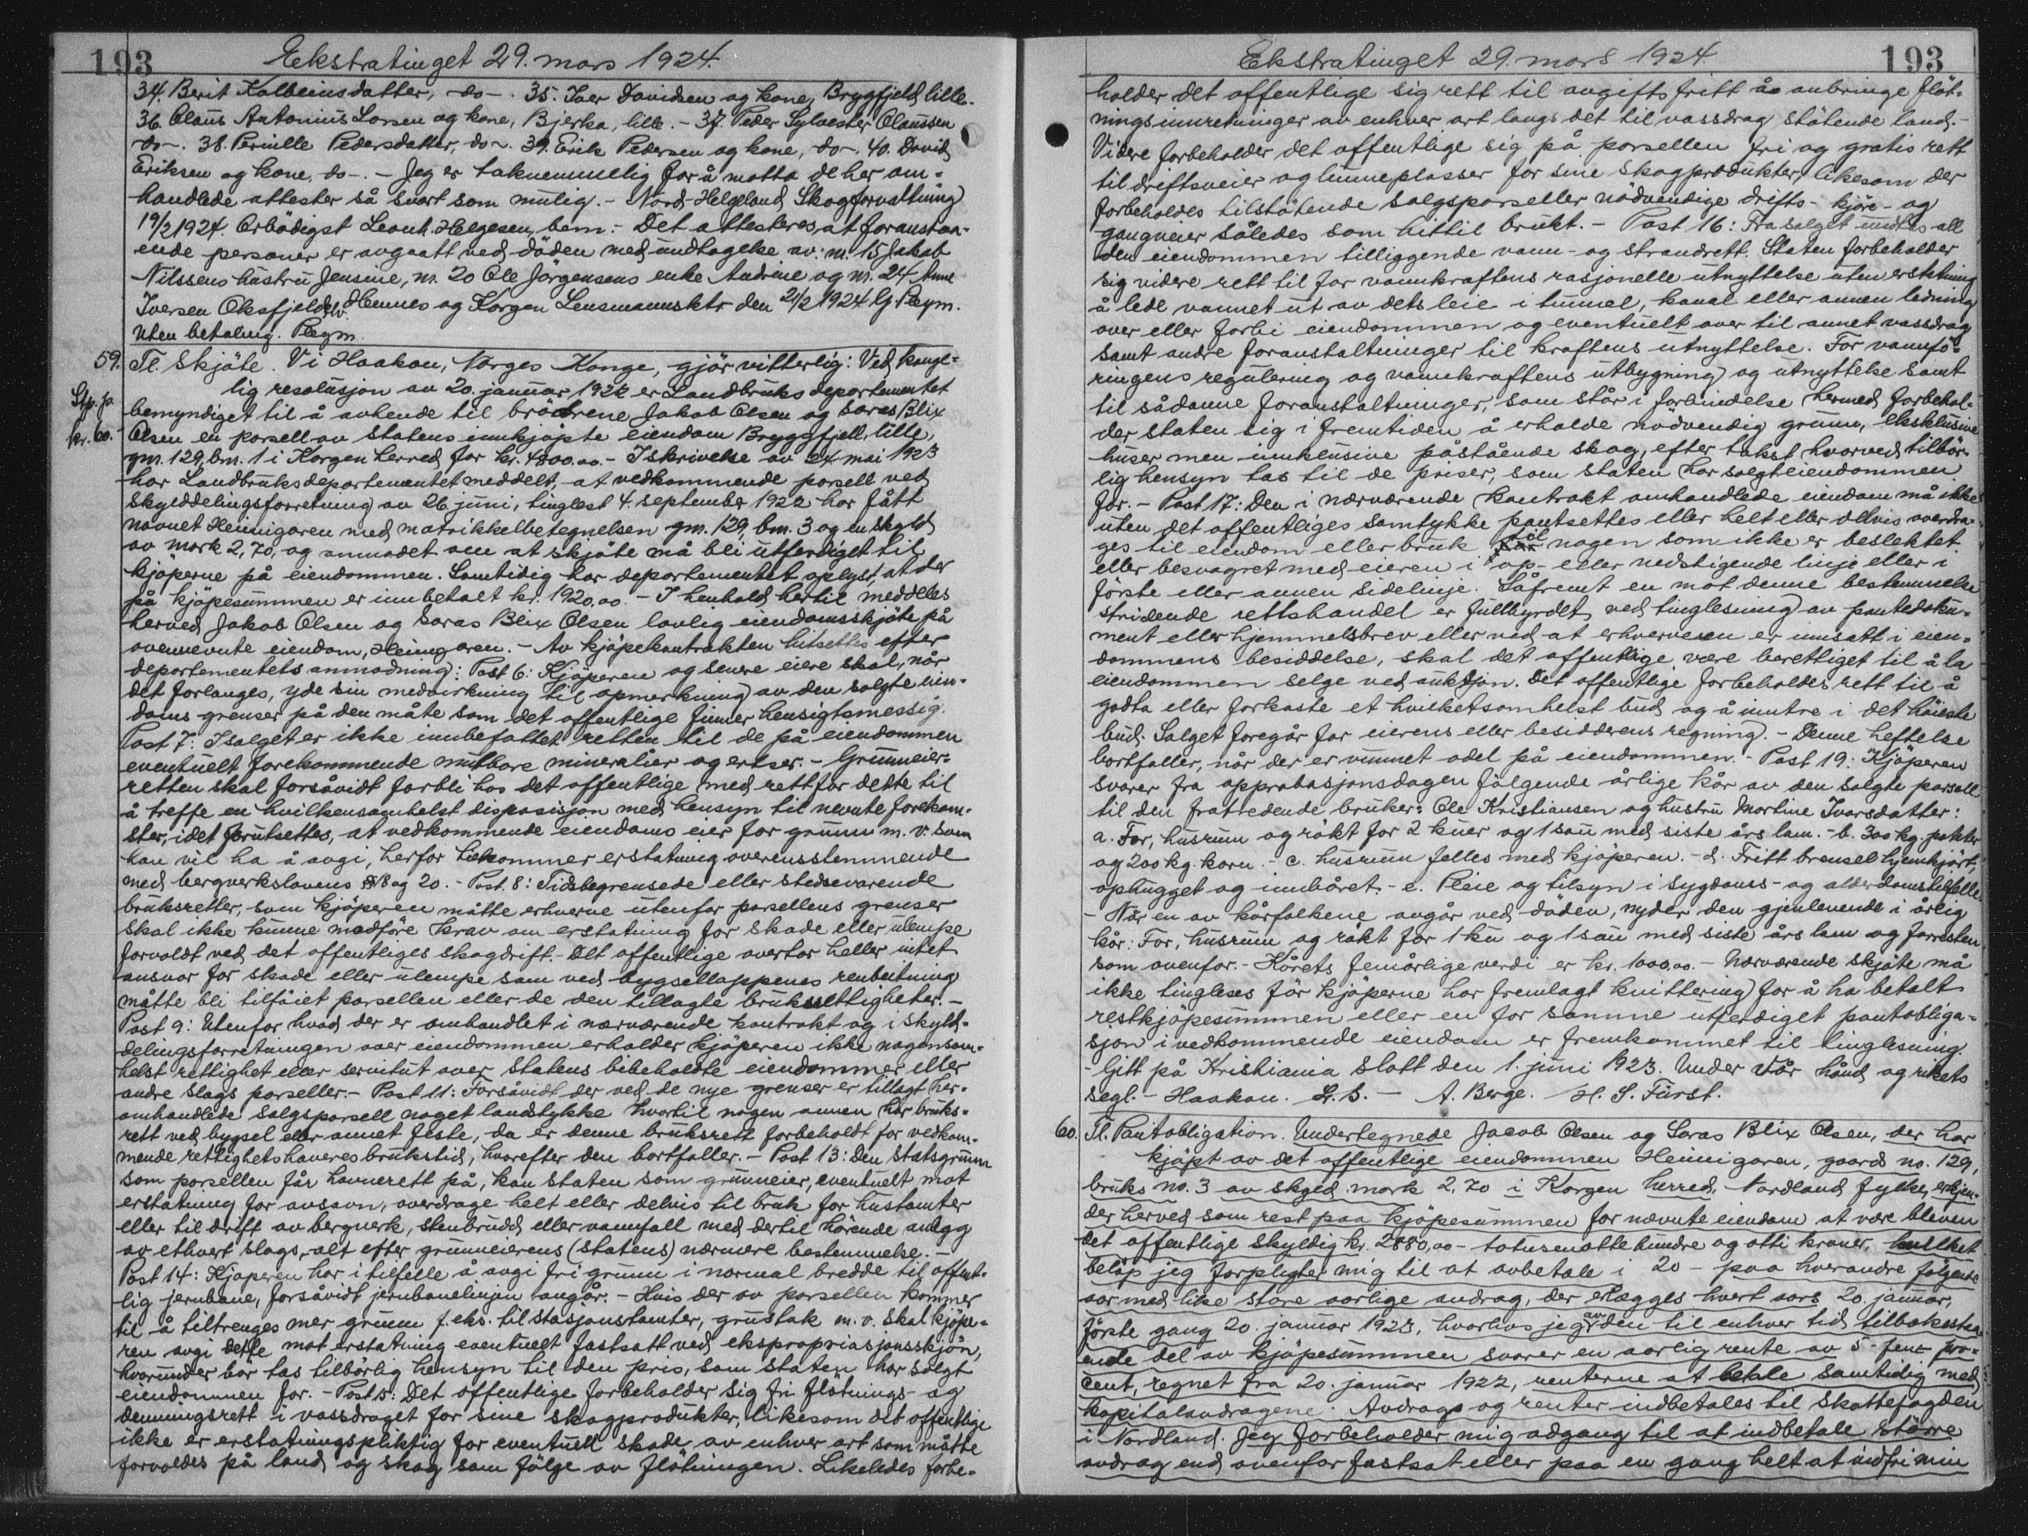 193
Ekstratinget 29. mars 1924.
34. Berit Kolbeinsdatter, -do-. 35. Iver Davidsen og kone, Bryggfjeld, lille.
36. Claus Antonius Larsen og kone, Bjerka, lille. - 37. Peder Sylvester Claussen
-do-. 38. Pernille Pedersdatter, -do-. 39. Erik Pedersen og kone, -do-. 40. David
Eriksen og kone, -do-. - Jeg er taknemmelig for å motta de her om-
handlede attester så snart som mulig. - Nord-Helgeland Skogforvaltning
19/2 1924. Ærbödigst Leonh. Helgesen, bem. - Det attesteres at foranstaa-
ende personer er avgaatt ved döden med undtagelse av: nr. 15 Jakob
Nilssens hustru Jensine, nr. 20 Ole Jörgensens enke Andrine og nr. 24 Anne
Iversen Oksfjeldli. Hemnes og Korgen Lensmannsktr den 21/2 1924 G. Reym.
Uten betaling. Reym.
59. Tl. Skjöte. Vi Haakon, Norges Konge, gjör vitterlig: Ved kongl-
lig resolusjon av 20. januar 1922 er Landbruksdepartementet
Stp. p.
bemyndiget til å avhende til brödrene Jakob Olsen og Soras Blix
kr. 60.-
Olsen en parsell av Statens innkjöpte eiendom Bryggfjell, lille,
gnr. 129, bnr. 1 i Korgen herred for kr. 4800.00. - I skrivelse av 24 mai 1923
har Landbruksdepartementet meddelt, at vedkommende parsell ved
skylddelingsforretning av 26 juni, tinglest 4. september 1922 har fått
navnet Heimigaren med matrikkelbetegnelsen gnr. 129, bnr. 3 og en skyld
av mark 2,70, og anmodet om at skjöte må bli utferdiget til
kjöperne på eiendommen. Samtidig har departementet oplyst, at der
på kjöpesummen er innbetalt kr. 1920,00. - I henhold hertil meddeles
herved Jakob Olsen og Soras Blix Olsen lovlig eiendomsskjöte på
ovennevnte eiendom, Heimigaren. - Av kjöpekontrakten hitsettes efter
departementets anmodning: Post 6: Kjöperen og senere eiere skal, når
det forlanges, yde sin medvirkning til opmerkning av den solgte eien-
doms grenser på den måte som det offentlige finner hensigtsmessig.
Post 7: I salget er ikke innbefattet retten til de på eiendommen
eventuelt forekommende mutbare mineralier og ertser. - Grunneier-
retten skal forsåvidt forbli hos det offentlige med rett for dette til
å treffe en hvilkensomhelst disposisjon med hensyn til nevnte forekom-
ster, idet forutsettes, at vedkommende eiendoms eier for grunn m. v. som
han vil ha å avgi, herfor tilkommer erstatning overensstemmende
med bergverkslovens §§ 18 og 20. - Post 8: Tidsbegrensede eller stedsevarende
bruksretter, som kjöperen måtte erhverve utenfor parsellens grenser
skal ikke kunne medföre krav om erstatning for skade eller ulempe
forvoldt ved det offentliges skogdrift. Det offentlige overtar heller intet
ansvar for skade eller ulempe som ved bygsellappenes renbeitning
måtte bli tilföiet parsellen eller de den tillagte bruksrettigheter. -
Post 9: Utenfor hvad der er omhandlet i nærværende kontrakt og i skyld-
delingsforretningen over eiendommen erholder kjöperen ikke nogensom-
helst rettighet eller servitut over Statens bibeholdte eiendommer eller
andre slags parseller. - Post 11: Forsåvidt der ved de nye grenser er tillagt her-
omhandlede salgsparsell noget landstykke hvortil nogen annen har bruks-
rett ved bygsel eller annet feste, da er denne bruksrett forbeholdt for vedkom-
mende rettighetshaveres brukstid, hvorefter den bortfaller. - Post 13: Den statsgrunn
som parsellen får havnerett på, kan staten som grunneier, eventuelt mot
erstatning for avsavn, overdrage helt eller delvis til bruk for hustomter
eller til drift av bergverk, stenbrudd eller vannfall med dertil hörende anlegg
av ethvert slags, alt efter grunneierens (statens) nærmere bestemmelse. -
Post 14: Kjöperen har i tilfelle å avgi fri grunn i normal bredde til offent-
lig jernbane, forsåvidt jernbanelinjen angår. - Hvis der av parsellen kommer
til å tiltrenges mer grunn f.eks. til stasjonstomter, grustak m. v. skal kjöpe-
ren avgi dette mot erstatning eventuelt fastsatt ved ekspropriasjonsskjön,
hvorunder bör tas tilbörlig hensyn til den pris, som staten har solgt
eiendommen for. - Post 15: Det offentlige forbeholder sig fri flötnings- og
demningsrett i vassdraget for sine skogprodukter, likesom det offentlige
ikke er erstatningspliktig for eventuell skade av enhver art som måtte
forvoldes på land og skog som fölge av flötningen. Likeledes forbe-
Ekstratinget 29. mars 1924.
193
holder det offentlige sig rett til avgiftsfritt å anbringe flöt-
ningsinnretninger av enhver art langs det til vassdrag stötende land. -
Videre forbeholder det offentlige sig på parsellen fri og gratis rett
til driftsveier og lunneplasser for sine skogprodukter, likesom der
forbeholdes tilstötende salgsparseller nödvendige drifts- kjöre- og
gangveier således som hittil brukt. - Post 16: Fra salget undtas all
den eiendommen tilliggende vann- og strandrett. Staten forbeholder
sig videre rett til for vannkraftens rasjonelle utnyttelse uten erstatning
å lede vannet ut av dets leie i tunnel, kanal eller annen ledning
over eller forbi eiendommen og eventuelt over til annet vassdrag
samt andre foranstaltninger til kraftens utnyttelse. For vannfö-
ringens regulering og vannkraftens utbygning og utnyttelse samt
til sådanne foranstaltninger, som står i forbindelse hermed forbehol-
der staten sig i fremtiden å erholde nödvendig grunn, eksklusive
huser men inklusive påstående skog, efter takst hvorved tilbör-
lig hensyn tas til de priser, som staten har solgt eiendommen
for. - Post 17: Den i nærværende kontrakt omhandlede eiendom må ikke
uten det offentliges samtykke pantsettes eller helt eller delvis overdra-
ges til eiendom eller bruk til nogen som ikke er beslektet
eller besvogret med eieren i op- eller nedstigende linje eller i
förste eller annen sidelinje. Såfremt en mot denne bestemmelse
stridende rettshandel er fullbyrdet ved tinglesning av pantedoku-
ment eller hjemmelsbrev eller ved at erhververen er innsatt i eien-
dommens besiddelse, skal det offentlige være berettiget til å la
eiendommen selge ved auksjon. Det offentlige forbeholdes rett til å
godta eller forkaste et hvilketsomhelst bud og å inntre i det höieste
bud. Salget foregår for eierens eller besidderens regning. - Denne heftelse
bortfaller, når der er vunnet odel på eiendommen. - Post 19: Kjöperen
svarer fra approbasjonsdagen fölgende årlige kår av den solgte parsell
til den fratredende bruker: Ole Kristiansen og hustru Martine Ivarsdatter:
a. For, husrum og rökt for 2 kuer og 1 sau med siste års lam. - b. 300 kg. poteter
og 200 kg. korn. - c. husrum felles med kjöperen. - d. Fritt brensel hjemkjört,
ophugget og innbåret. - e. Pleie og tilsyn i sygdoms- og alderdomstilfelle.
- Når en av kårfolkene avgår ved döden, nyder den gjenlevende i årlig
kår: For, husrum og rökt for 1 ku og 1 sau med siste års lam og forresten
som ovenfor. - Kårets femårlige verdi er kr. 1000,00. - Nærværende skjöte må
ikke tingleses för kjöperne har fremlagt kvittering for å ha betalt
restkjöpesummen eller en for samme utferdiget pantobliga-
sjon i vedkommende eiendom er fremkommet til tinglesning.
- Gitt på Kristiania slott den 1. juni 1923. Under Vår hånd og rikets
segl. - Haakon. L. S. - A. Berge. H. S. Fürst.
60. Tl. Pantobligation. Undertegnede Jacob Olsen og Soras Blix Olsen, der har
kjöpt av det offentlige eiendommen Heimigaren, gaards no. 129,
bruks no. 3 av skyld mark 2.70 i Korgen herred, Nordland fylke, erkjen-
der herved som rest paa kjöpesummen for nævnte eiendom at være bleven
det offentlige skyldig kr. 2880,00 - totusenottehundre og otti kroner, hvilket
belöp jeg forpligter mig til at avbetale i 20 - paa hverandre fölgende
aar med like store aarlige avdrag, der erlægges hvert aars 20. januar,
förste gang 20. januar 1923, hvorhos jeg av den til enhver tid tilbakestaa-
ende del av kjöpesummen svarer en aarlig rente av 5 - fem pro-
cent, regnet fra 20. januar 1922, renterne at betale samtidig med
kapitalavdragene. Avdrag og renter indbetales til skattefogden
i Nordland. Jeg forbeholder mig adgang til at indbetale större
avdrag end ovenfor fastsat eller paa en gang helt at indfri min